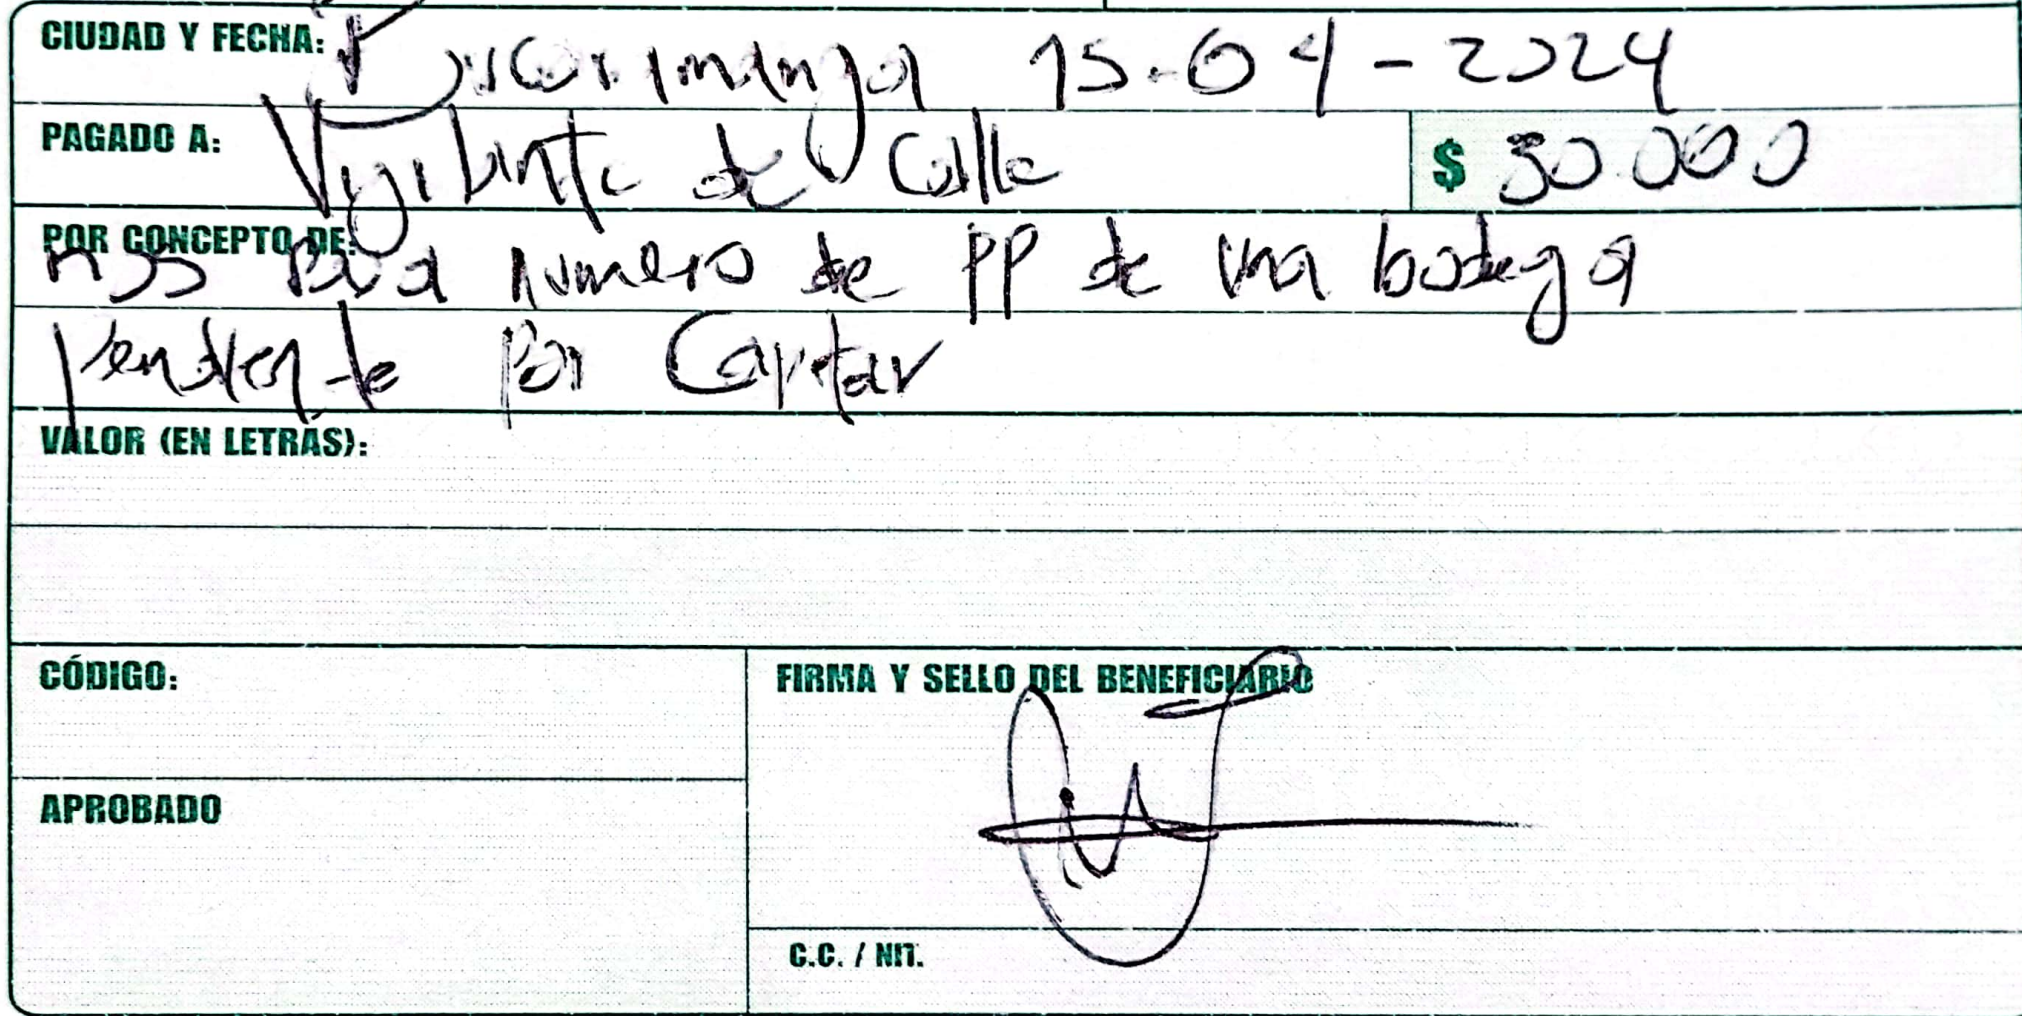 CIUDAD Y FECHA: Bucaramanga 15-04-2024
PAGADO A: Vigilante de Calle $ 30.000
POR CONCEPTO DE:
numero de PP de una bodega
Pendiente por Captar
VALOR (EN LETRAS):
CÓDIGO: FIRMA Y SELLO DEL BENEFICIARIO
APROBADO
C.C. / NIT.